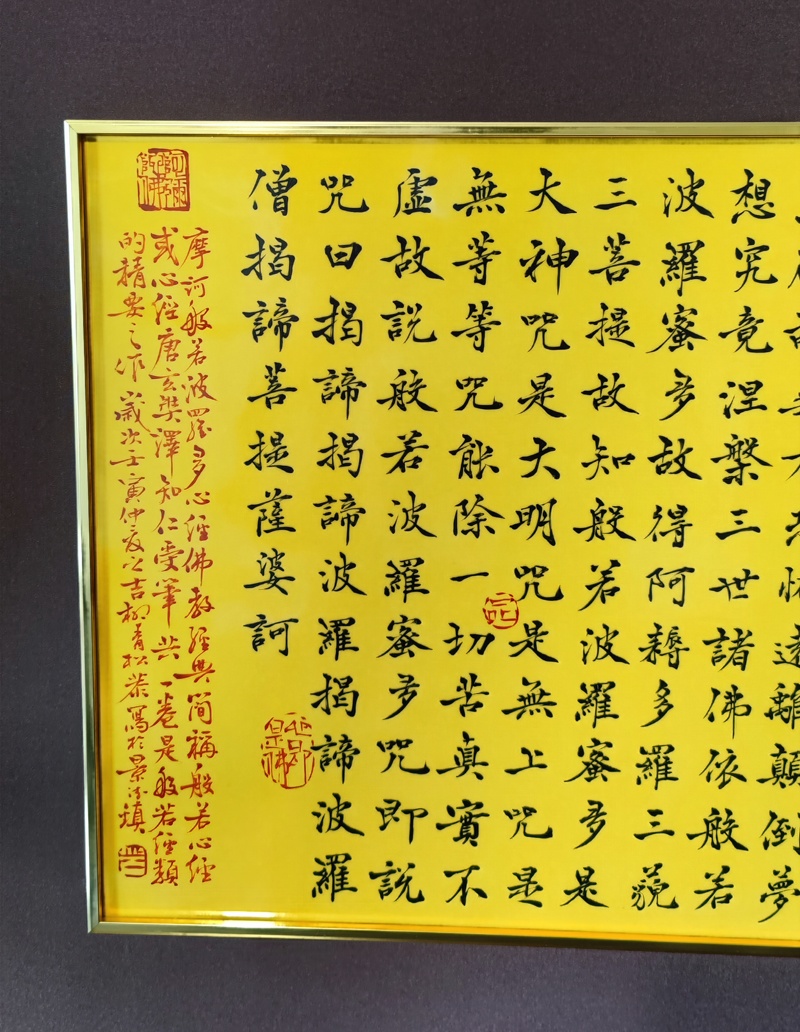 遠離顛倒夢
想究竟涅槃三世諸佛依般若
波羅蜜多故得阿耨多羅三藐
三菩提故知般若波羅蜜多是
大神咒是大明咒是無上咒是
無等等咒能除一切苦真實不
虛故說般若波羅蜜多咒即說
咒曰揭諦揭諦波羅揭諦波羅
僧揭諦菩提薩婆訶
摩訶般若波羅多心經佛教經典簡稱般若心經
或心經唐玄奘譯知仁受筆共一卷是般若經類
的精要之作歲次壬寅仲夏之吉柳青松恭寫於景德鎮
阿彌陀佛